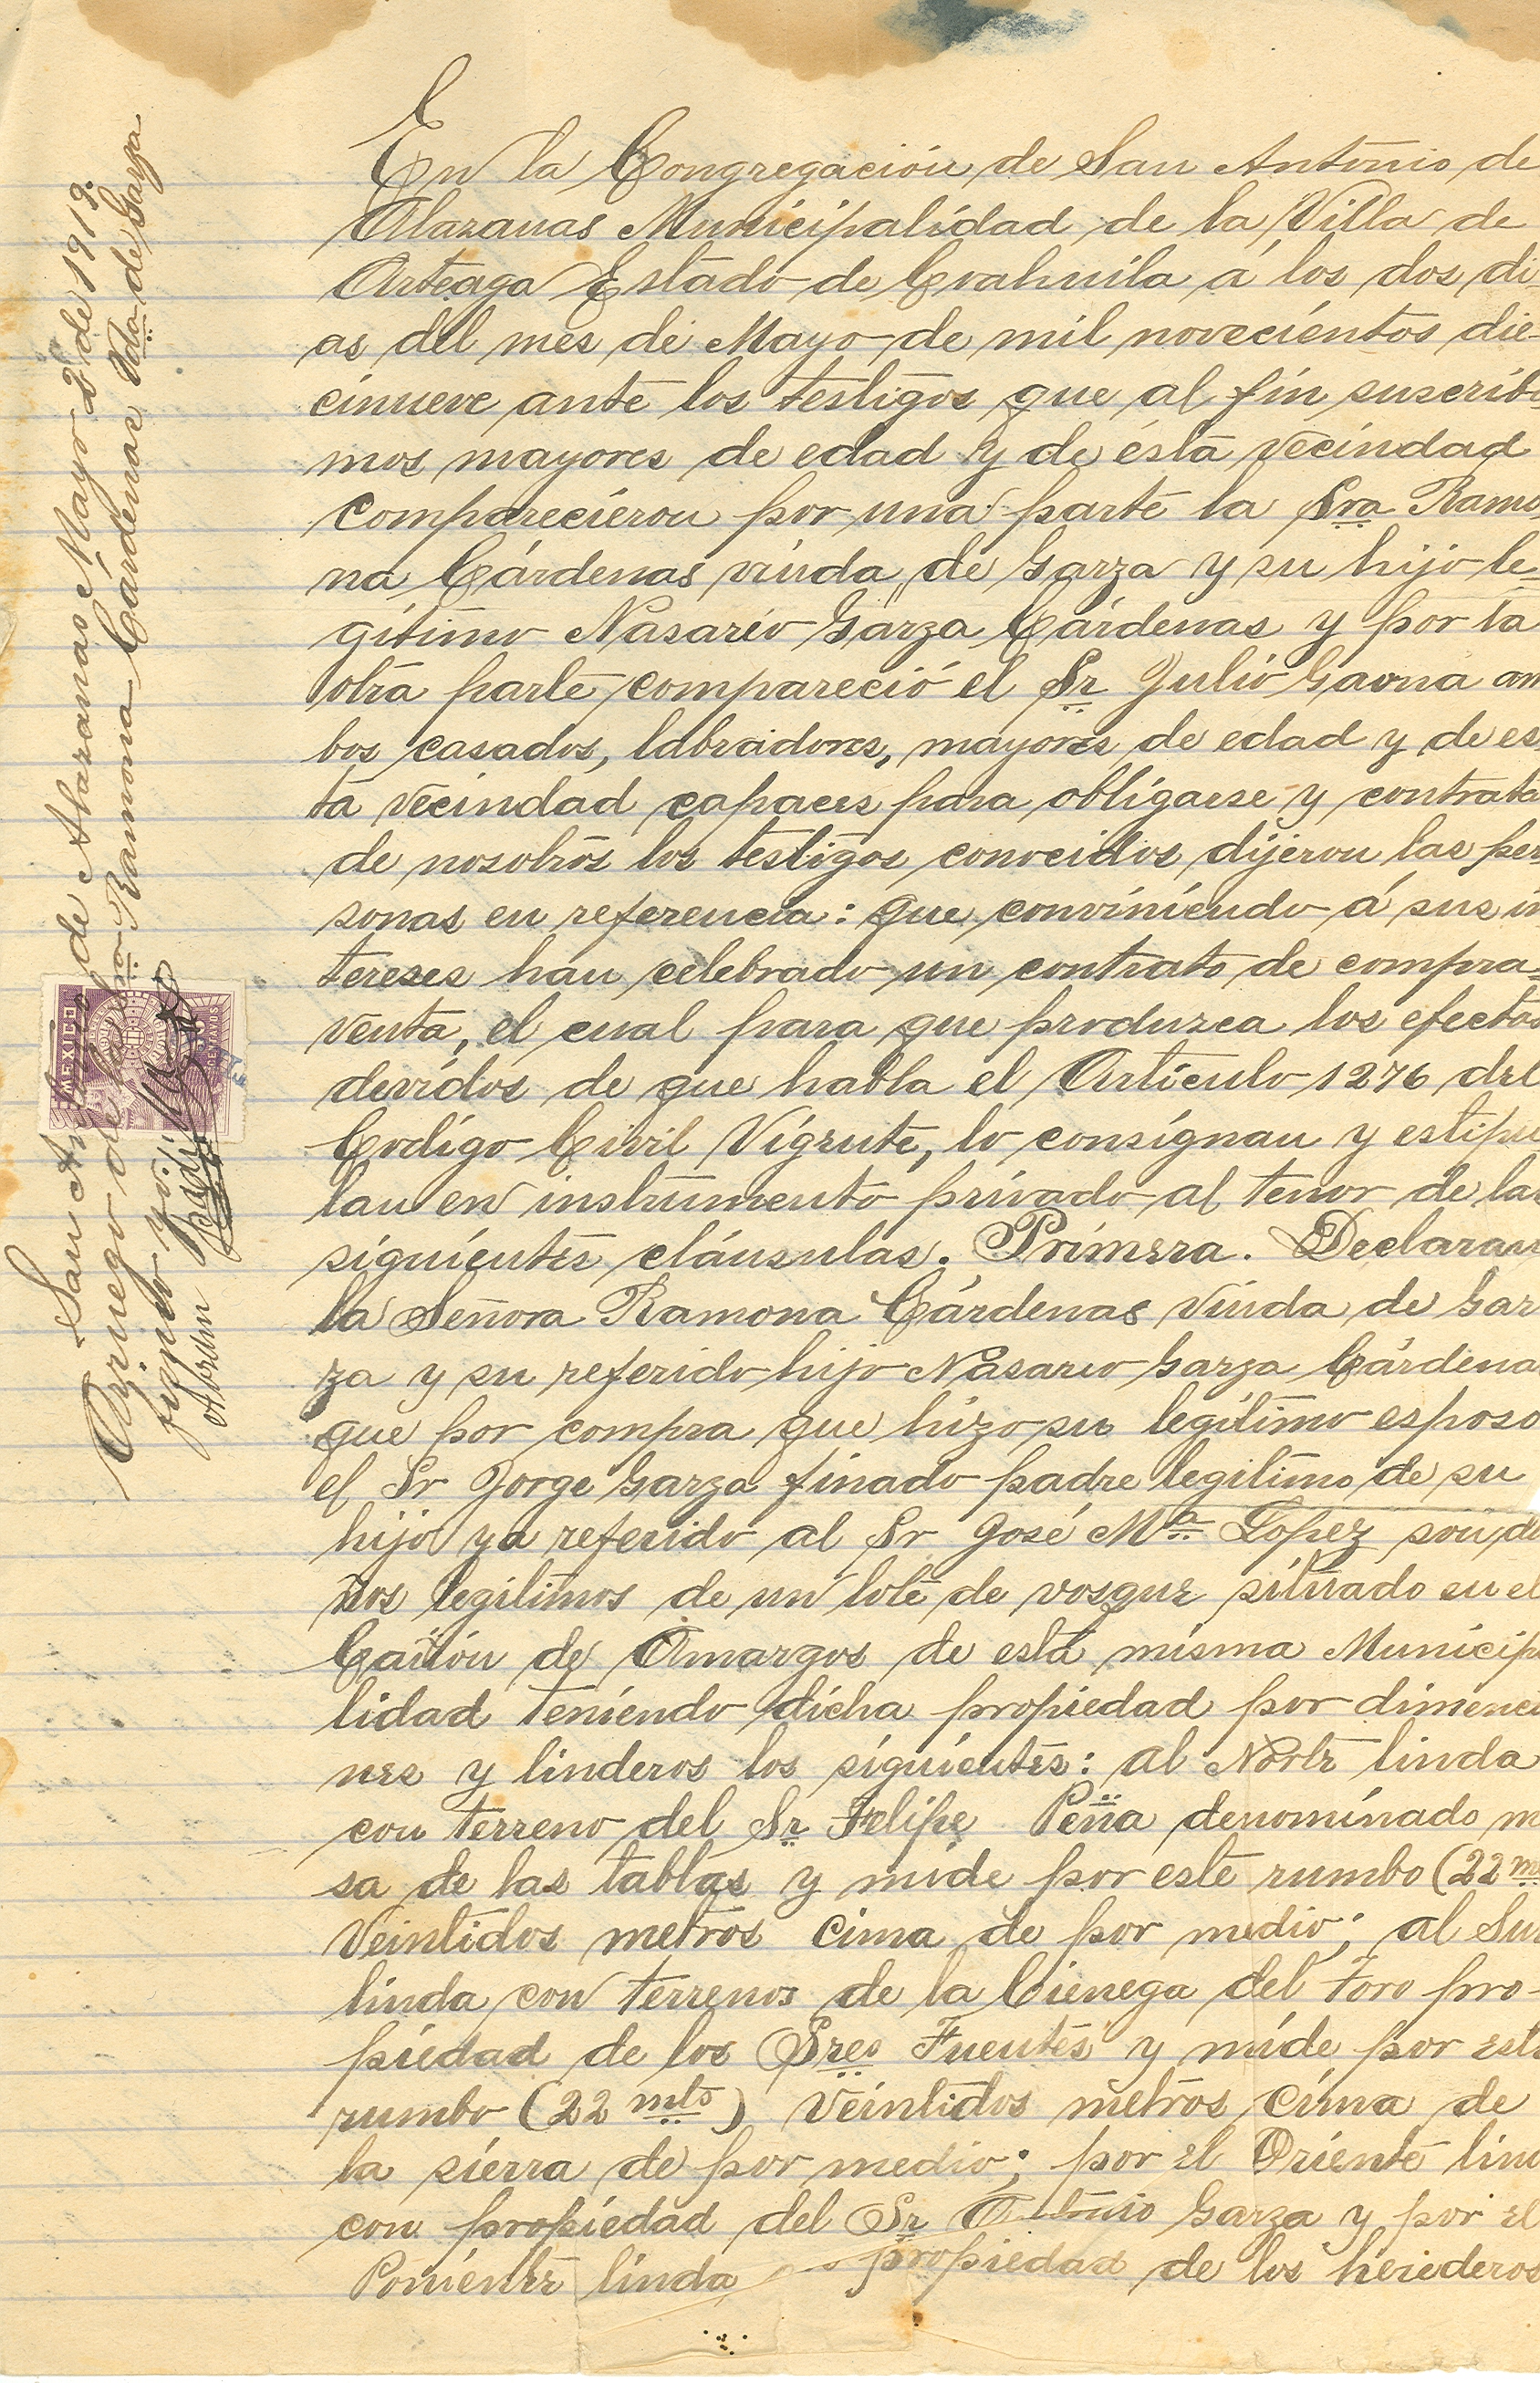 En la Congregación de San Antonio de
Alazanas Municipalidad de la Villa de
Arteaga Estado de Coahuila á los dos di-
as del mes de Mayo de mil novecientos die-
cinueve ante los testigos que al fin suscribi
mos mayores de edad y de ésta vecindad
comparecieron por una parte la Sra Ramo
na Cárdenas viuda de Garza y su hijo le-
gitimo Nasario Garza Cárdenas y por la
otra parte compareció el Sr Julio Gaona am
bos casados, labradores, mayores de edad y de es
ta vecindad capaces para obligarse y contrata
de nosotros los testigos conocidos dijeron las per
sonas en referencia: que conviniendo á sus in
tereses han celebrado un contrato de compra-
venta, el cual para que produzca los efectos
devidos de que habla el Articulo 1276 del
Codigo Civil Vigente, lo consignan y estipu
lan en instrumento privado al tenor de las
siguientes cláusulas. Primera. Declaran
la Señora Ramona Cárdenas Viuda de Gar
za y su referido hijo Nasario Garza Cárdenas
que por compra que hizo su legitimo esposo
el Sr Jorge Garza finado padre legitimo de su
hijo ya referido al Sr José Ma Lopez son du
ños legitimos de un lote de vosque situado en el
Cañón de Amargos de esta misma Municipa
lidad teniendo dicha propiedad por dimencio
nes y linderos los siguientes: al Norte linda
con terreno del Sr Felipe Peña denominado me
sa de las tablas y mide por este rumbo (22 mts
Veintidos metros cima de por medio; al Sur
linda con terrenos de la Cienega del Toro pro-
piedad de los Sres Fuentes y mide por este
rumbo (22 mts) Veintidos metros cima de
la sierra de por medio; por el Oriente lind
con propiedad del Sr Antonio Garza y por el
Poniente linda propiedad de los herederos
San Antonio de Alazanas Mayo 2 de 1919.
A ruego de la Sra Ramona Cárdenas Vda de Garza
firmo yó.
Abran
MEXICO
CENTAVOS